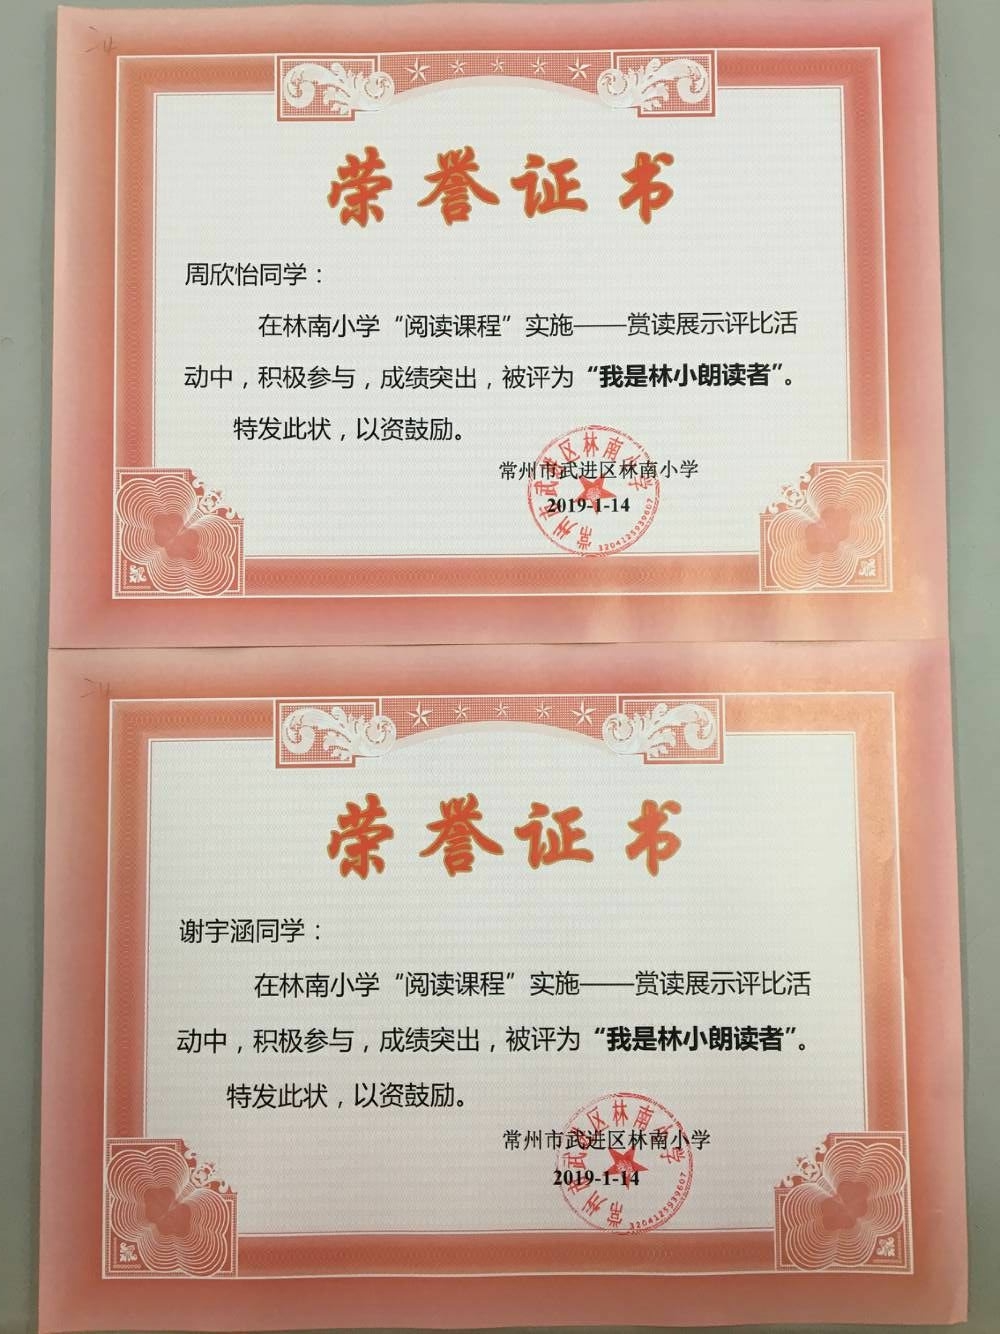 荣誉证书
周欣怡同学：
在林南小学“阅读课程”实施——赏读展示评比活
动中，积极参与，成绩突出，被评为“我是林小朗读者”。
特发此状，以资鼓励。
常州市武进区林南小学
2019-1-14
常州市武进区林南小学
3204125939607
荣誉证书
谢宇涵同学：
在林南小学“阅读课程”实施——赏读展示评比活
动中，积极参与，成绩突出，被评为“我是林小朗读者”。
特发此状，以资鼓励。
常州市武进区林南小学
2019-1-14
常州市武进区林南小学
3204125939607